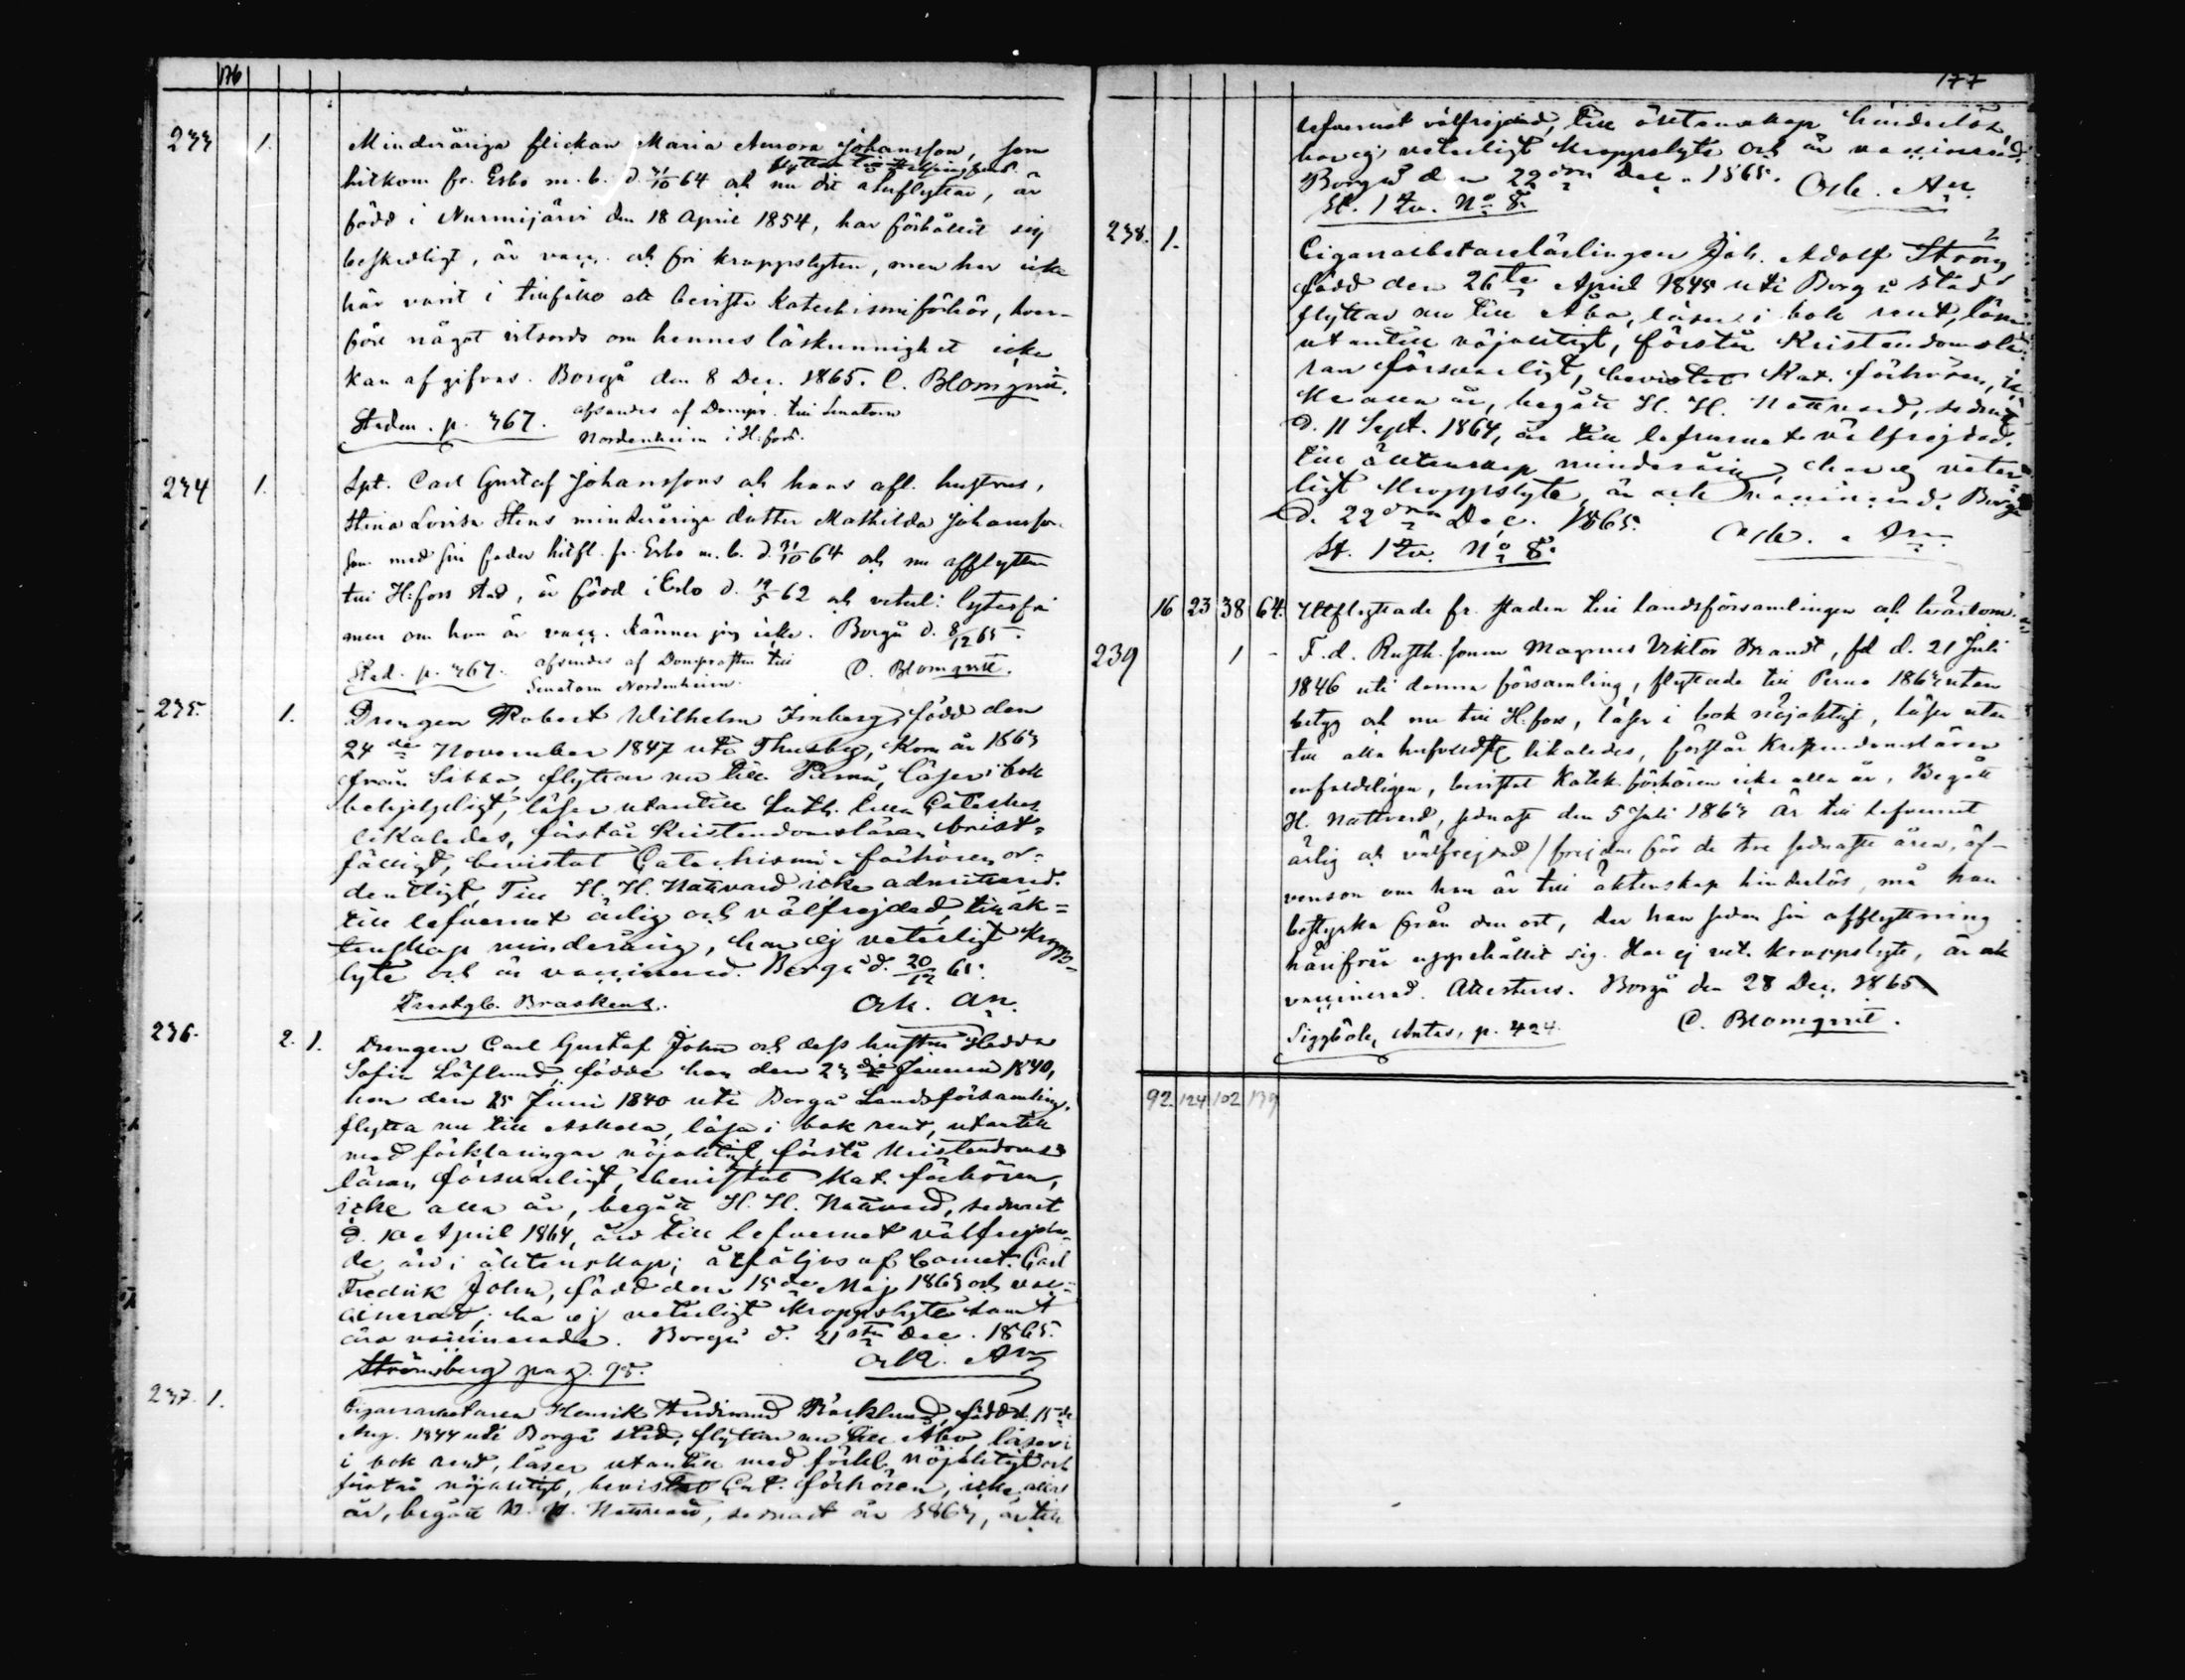 176
233 1. Minderåriga flickan Maria Aurora Johansson, som
flyttar till Helsingfors
hitkom fr. Esbo m. b. d. 31/10 64 och nu dit återflyttar, är
född i Nurmijärvi den 18 April 1854, har förhållit sig
beskedligt, är vacc. och fri kroppslyten, men har icke
här varit i tillfälle att bevista Katechismiförhör, hvar-
före något vitsord om hennes läskunnighet icke
kan afgifvas. Borgå den 8 Dec. 1865. C. Blomqvist.
Staden. p. 367. afsändes af Dompr. till Senatorn
Nordenheim i H:fors.
234 1. Spt. Carl Gustaf Johanssons och hans afl. hustrus,
Stina Lovisa Stens minderåriga dotter Mathilda Johansson
som med sin fader hitfl. fr. Esbo m. b. d. 31/10 64 och nu afflyttar
till H:fors stad, är född i Esbo d. 19/5 62 och veterl: lytesfri
men om hon är vacc. känner jag icke. Borgå d. 8/12 65.
Stad. p. 367. afsändes af Domprosten till C. Blomqvist.
Senatorn Nordenheim.
235. 1. Drengen Robert Wilhelm Imberg, född den
24de November 1847 uti Thusby, kom år 1863
från Sibbo, flyttar nu till Pernå, läser i bok
behjelpligt, läser utantill Luth. lilla Cateches
likaledes, förstår Kristendomsläran brist=
fälligt, bevistat Catechismi-förhören or=
dentligt, Till H. H. Nattvard icke admitterad.
till lefvernet ärlig och välfrejdad, till äk=
tenskap minderårig, har ej veterligt kropps=
lyte och är vaccinerad. Borgå d. 20/12 65.
Prestgb. Braskens. Ad. An.
236. 2. 1. Drengen Carl Gustaf John och dess hustru Hedda
Sofia Löflund, födde han den 23de Januari 1840,
hon den 25 Juni 1840 uti Borgå Landsförsamling,
flytta nu till Askola, läsa i bok rent, utantill
med förklaringar nöjaktigt, förstå Kristendoms
läran försvarligt, bevistat Kat. förhören,
icke alla år, begått H. H. Nattvard, sednast
d. 10 April 1864, äro till lefvernet välfrejda-
de, äro i äktenskap; åtföljas af barnet: Carl
Fredrik John, född den 15de Maj 1863 och vac=
cinerad; ha ej veterligt kroppslyte samt
äro vaccinerade. Borgå d. 21sta Dec. 1865.
Strömsberg pag. 95. Ad. An
237. 1. Cigarrarbetaren Henrik Ferdinand Bäcklund, född d. 15de
Aug. 1844 uti Borgå stad, flyttar nu till Åbo, läser i
i bok rent, läser utantill med förkl. nöjaktigt och
förstår nöjaktigt, bevistat Cat. förhören, icke alla
år, begått H. H. Nattvard, sednast år 1863, är till
177
lefvernet välfrejdad, till äktenskap hinderlös,
har ej veterligt kroppslyte och är vaccinerad.
Borgå den 22dra Dec. 1865. Ad. An.
St. 1 Qv. No 8.
238. 1. Cigarrarbetarelärlingen Joh. Adolf Strong
född den 26te April 1845 uti Borgå stad
flyttar nu till Åbo, läser i bok rent, läser
utantill nöjaktigt, förstår Kristendomslä-
ran försvarligt, bevistat Kat. förhören, ic-
ke alla år, begått H. H. Nattvard, sednast
d. 11 Sept. 1864, är till lefvernet välfrejdad,
till äktenskap minderårig, har ej veter-
ligt kroppslyte, är och vaccinerad. Borgå
d. 22dra Dec. 1865. Ad. An.
St. 1 Qv. No 8.
16 23 38 64. Utflyttade fr. staden till Landsförsamlingen och tvärtom.
239 1 - F.d. Rusth. sonen Magnus Viktor Brandt, fd d. 21 Juli
1846 uti denna församling, flyttade till Perno 1863 utan
betyg och nu till H:fors, läser i bok nöjaktigt, läser utan
till alla hufvudst. likaledes, förstår Kristendomsläran
enfaldeligen, bevistat Katek. förhören icke alla år. Begått
H. Nattvard, sednast den 5 Juli 1863 Är till lefvernet
ärlig och välfrejdad / frejden för de tre sednaste åren, äf-
venson om han är till äktenskap hinderlös, må han
bestyrka från den ort, der han sedan sin afflyttning
härifrån uppehållit sig. Har ej vet. kroppslyte, är och
vaccinerad. Attesteras. Borgå den 28 Dec. 1865
Siggböle, Antas, p. 424. C. Blomqvist.
92. 124 102 139